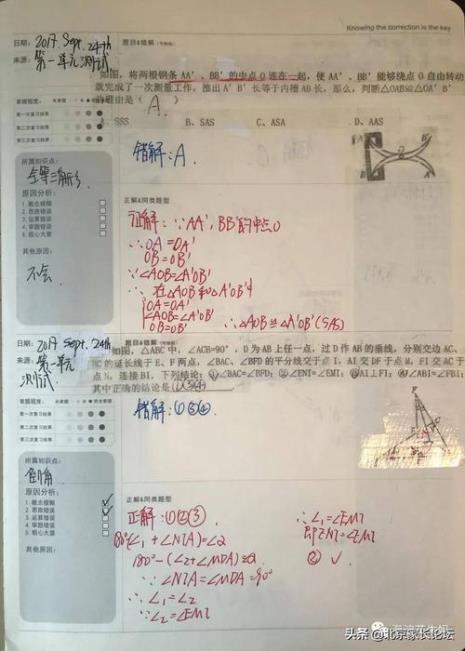 Knowing the correction is the key
日期: 2017. Sept. 24th
来源: 第一单元测试
题目&错解
如图,将两根钢条 AA'、BB' 的中点 O 连在一起,使 AA'、BB' 能够绕点 O 自由转动
就完成了一次测量工作,推出 A'B' 长等于内槽 AB 长,那么,判断△OAB≌△OA'B'
的理由是( A )
A. SSS B. SAS C. ASA D. AAS
掌握程度:
第一次复习结果
第二次复习结果
第三次复习结果
错解:A
所属知识点:
全等三角形
原因分析:
1. 概念模糊
2. 思路错误
3. 运算错误
4. 审题错误
5. 粗心大意
其他原因:
不会
正解&同类题型
正解:∵AA', BB'的中点O
∴OA=OA'
OB=OB'
∵∠AOB=∠A'OB'
∴在△AOB和△A'OB'中
OA=OA'
∠AOB=∠A'OB'
OB=OB'
∴△AOB≌△A'OB'(SAS)
日期: 2017 Sept. 24th
来源: 第一单元测试
题目&错解
如图,△ABC 中,∠ACB=90°,D 为 AB 上任一点,过 D 作 AB 的垂线,分别交边 AC、
BC 的延长线于 E、F 两点,∠BAC、∠BFD 的平分线交于点 I,AI 交 DF 于点 M,FI 交 AC 于
点 N,连接 BI,下列结论:①∠BAC=∠BFD;②∠ENI=∠EMI;③AI⊥FI;④∠ABI=∠FBI;
其中正确的结论是
掌握程度:
第一次复习结果
第二次复习结果
第三次复习结果
错解:①③④
所属知识点:
倒角
原因分析:
1. 概念模糊
2. 思路错误
3. 运算错误
4. 审题错误
5. 粗心大意
其他原因:
正解&同类题型
正解:①②③
180°-(∠2+∠MDA)
∵∠NIA=∠MDA=90°
∴∠1=∠2
∵∠2=∠EMI
∴∠1=∠EMI
即∠ENI=∠EMI
② √
头条@北京家长论坛